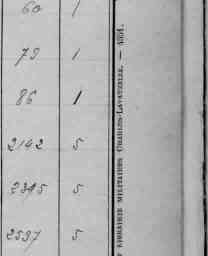 60 1
79 1
86 1
2142 5
2345 5
2537 5
LIBRAIRIE MILITAIRE CHARLES-LAVAUZELLE. —